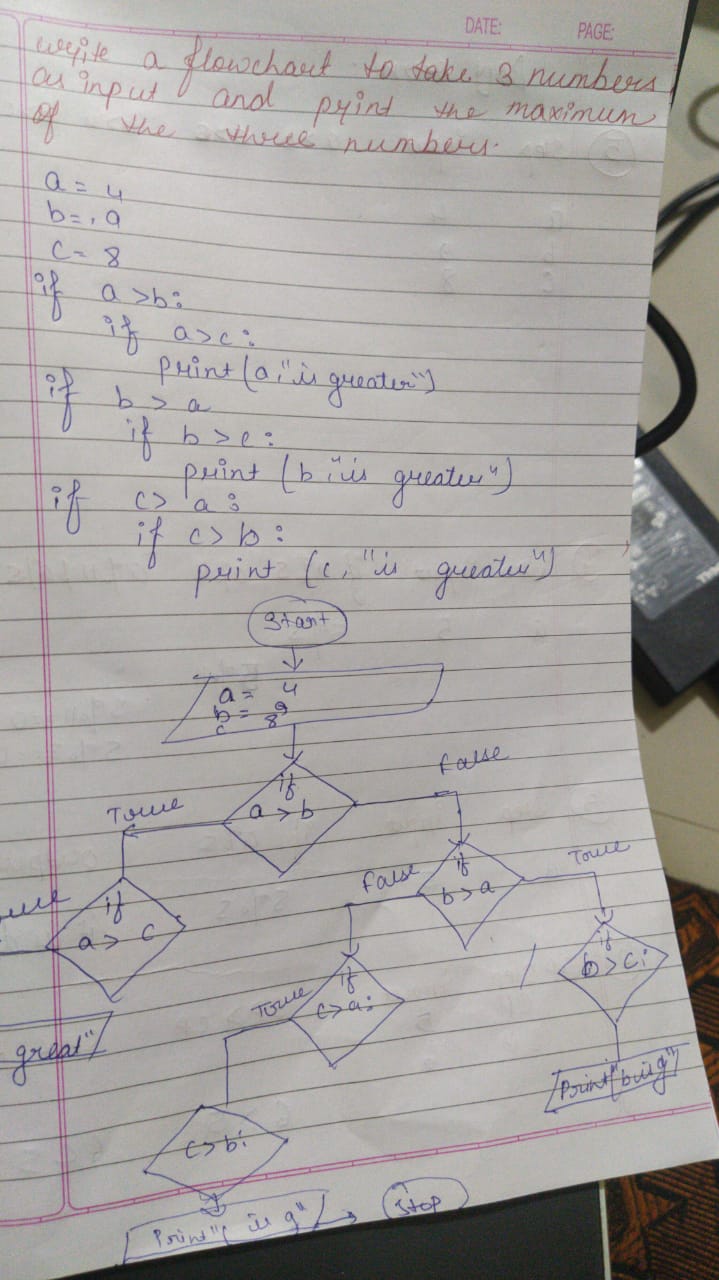 DATE: PAGE:
write a flowchart to take 3 numbers
as input and print the maximum
of the three numbers.
a = 4
b = 9
c = 8
if a >b:
if a>c:
print (a,"is greater")
if b > a
if b >c:
print (b,"is greater")
if c> a:
if c> b:
print (c, "is greater")
Start
a = 4
b = 9
c 8
if
a > b
True
False
if
a > c
if
b > a
False
True
if
b > c:
True
if
c>a:
great"
Print("b is g"
c > b:
Print"( is g"
Stop